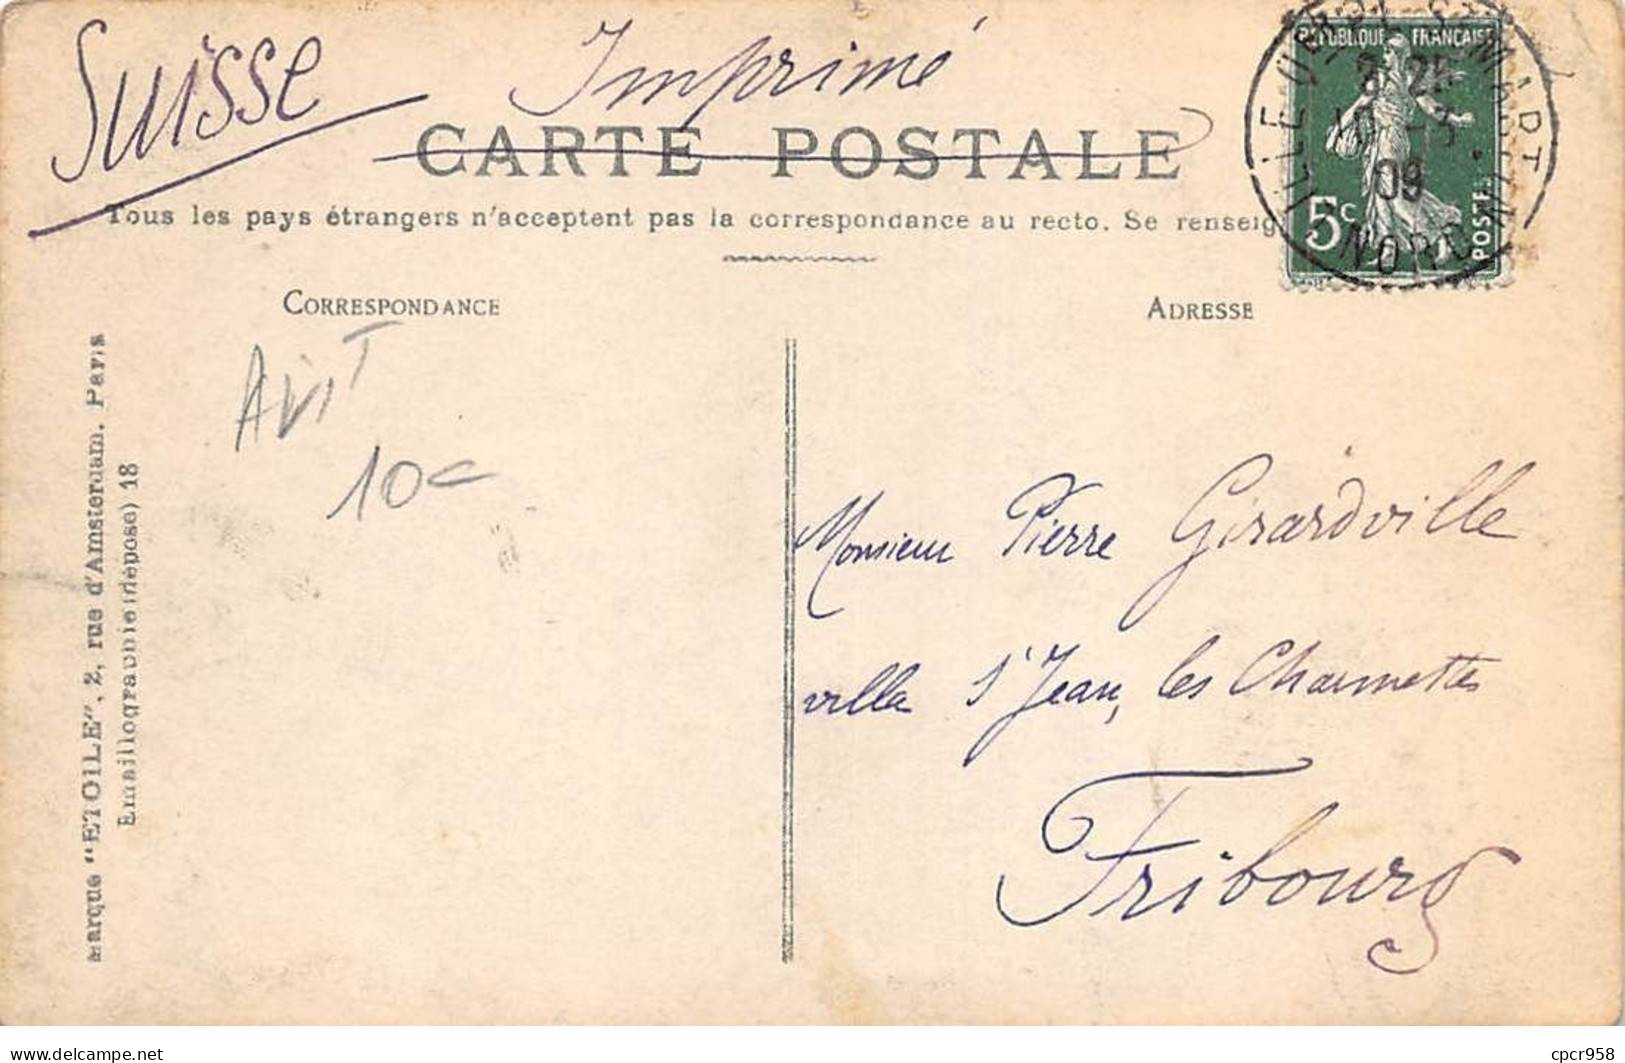 Suisse Imprimé
CARTE POSTALE
Tous les pays étrangers n'acceptent pas la correspondance au recto. Se renseig
REPUBLIQUE FRANÇAISE
5c
POSTES
10 -3
09
NORD
CORRESPONDANCE
ADRESSE
10c
Marque "ETOILE", 2, rue d'Amsterdam. Paris
Emaillographie (déposé) 18
Monsieur Pierre Girardville
villa St Jean, les Charmettes
Fribourg
cpcr958